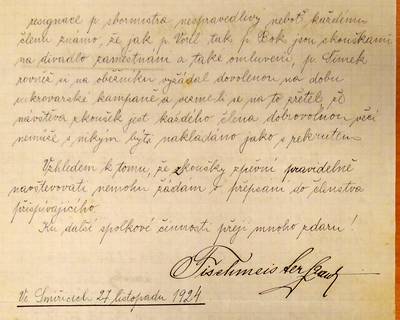 resignace p. sbormistra nespravedlivý neboť každému
členu známo, že jak p. Vocil tak p. Bok jsou zkouškami
na divadlo zaměstnáni a také omluveni, p. Šimek
rovněž si na oběžníku vyžádal dovolenou na dobu
cukrovarské kampaně a vezmeli se na to zřetel, že
návštěva zkoušek jest každého člena dobrovolnou věcí
nemůže s nikým býti nakládáno jako s rekrutem.
Vzhledem k tomu, že zkoušky zpěvní pravidelně
navštěvovati nemohu žádám o přepsání do členstva
přispívajícího.
Ku další spolkové činnosti přeji mnoho zdaru!
Tischmeister
Ve Smiřicích 27 listopadu 1924